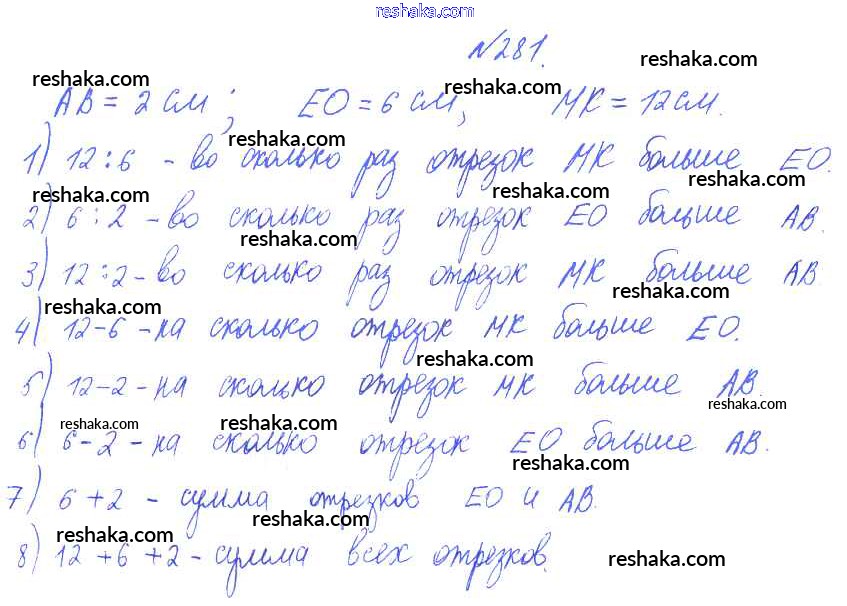 reshaka.com
№281.
reshaka.com
reshaka.com
reshaka.com
reshaka.com
АВ = 2 см; ЕО = 6 см, МК = 12 см.
reshaka.com
1) 12:6 - во сколько раз отрезок МК больше ЕО.
reshaka.com
reshaka.com
reshaka.com
2) 6:2 - во сколько раз отрезок ЕО больше АВ.
reshaka.com
3) 12:2 - во сколько раз отрезок МК больше АВ
reshaka.com
reshaka.com
4) 12-6 - на сколько отрезок МК больше ЕО.
reshaka.com
5) 12-2 - на сколько отрезок МК больше АВ.
reshaka.com
reshaka.com
reshaka.com
6) 6-2 - на сколько отрезок ЕО больше АВ.
reshaka.com
7) 6+2 - сумма отрезков ЕО и АВ.
reshaka.com
reshaka.com
8) 12+6+2 - сумма всех отрезков.
reshaka.com